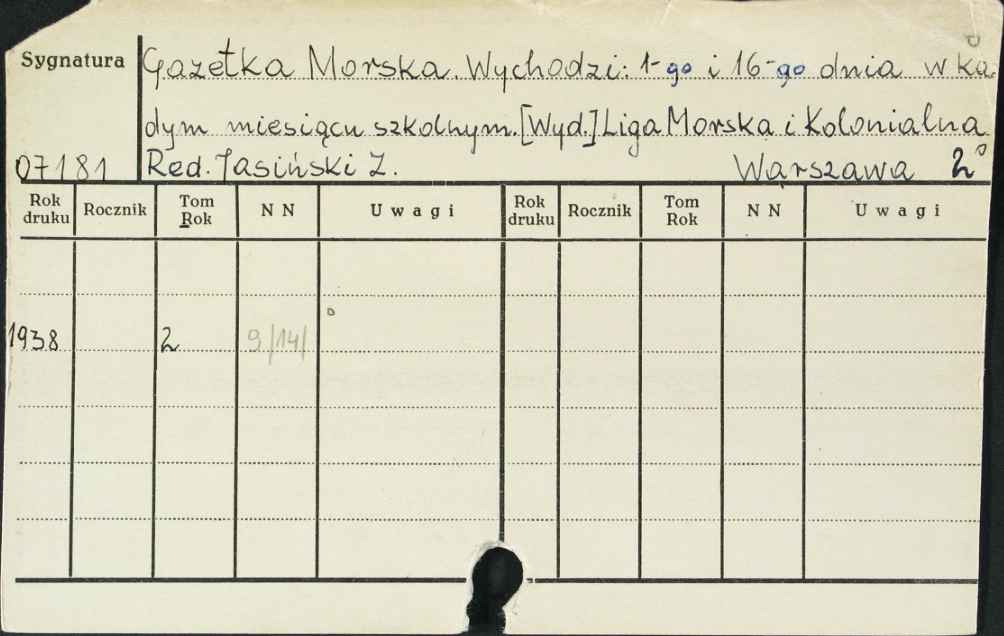 Sygnatura
Gazetka Morska. Wychodzi: 1-go i 16-go dnia w ka
dym miesiącu szkolnym. [Wyd.] Liga Morska i Kolonialna
07181 Red. Jasiński Z. Warszawa 2°
Rok druku Rocznik Tom Rok NN Uwagi Rok druku Rocznik Tom Rok NN Uwagi
1938 2 9/14/